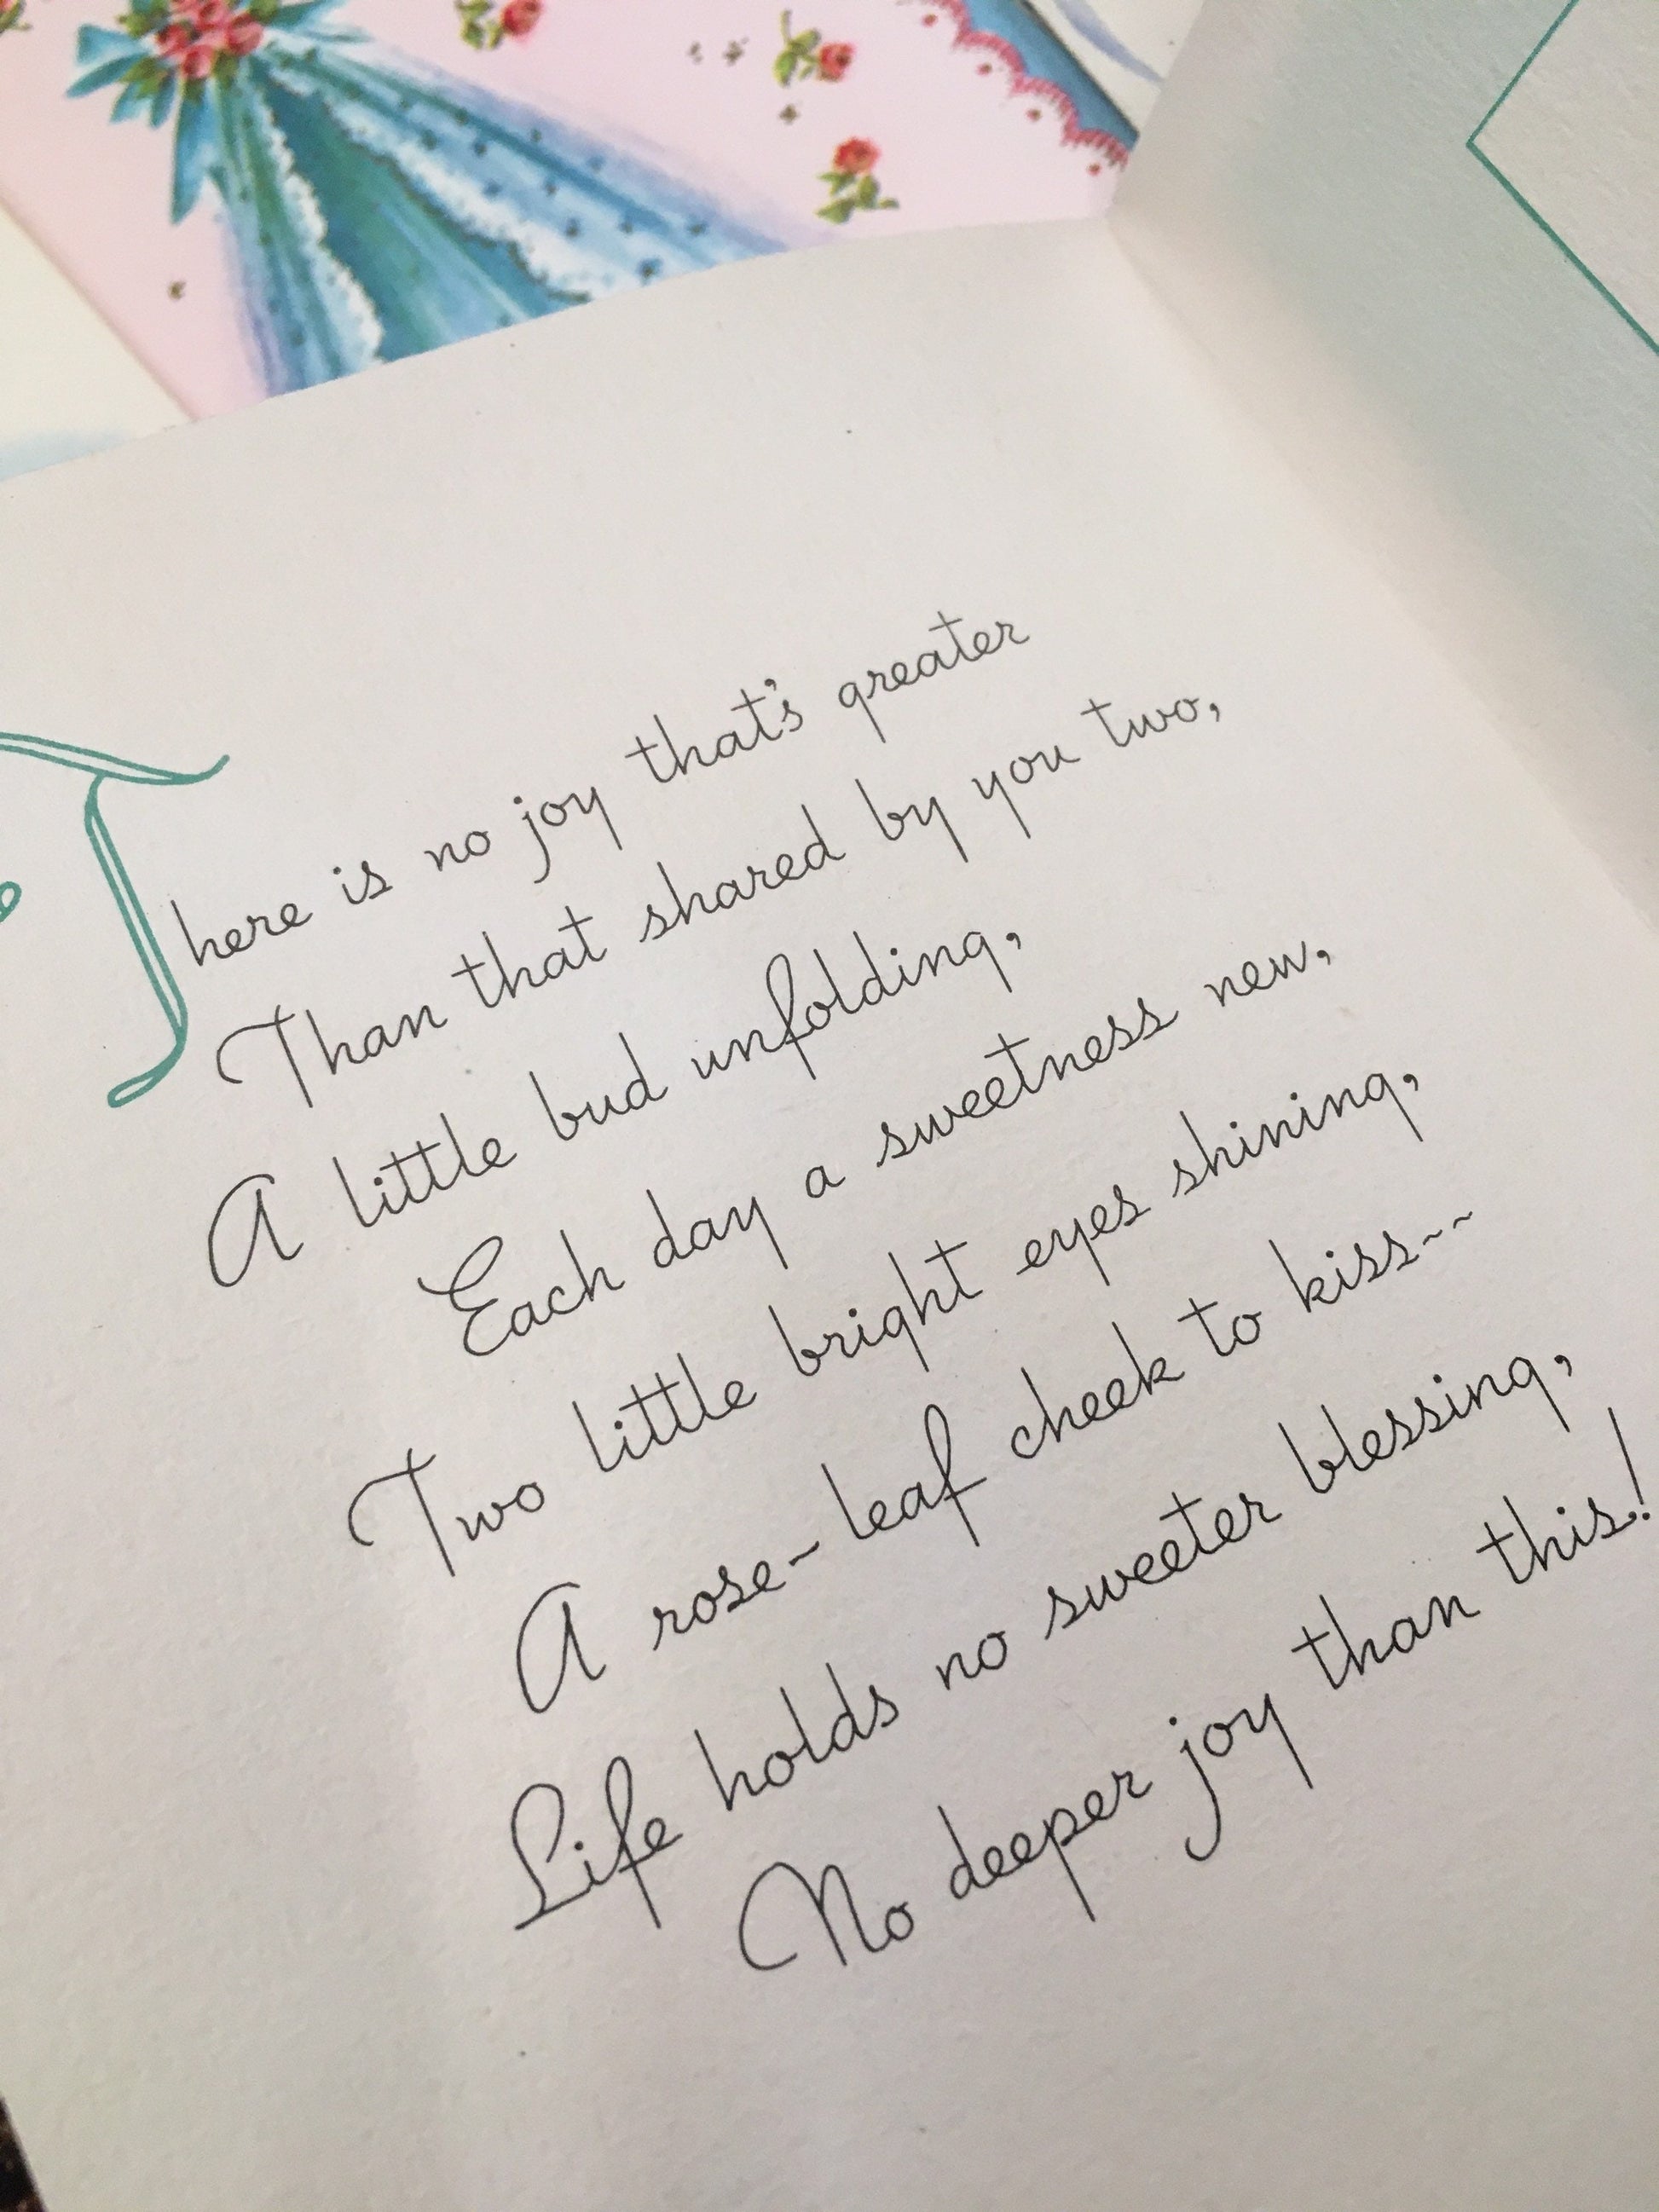 There is no joy that's greater
Than that shared by you two,
A little bud unfolding,
Each day a sweetness new,
Two little bright eyes shining,
A rose-leaf cheek to kiss--
Life holds no sweeter blessing,
No deeper joy than this!